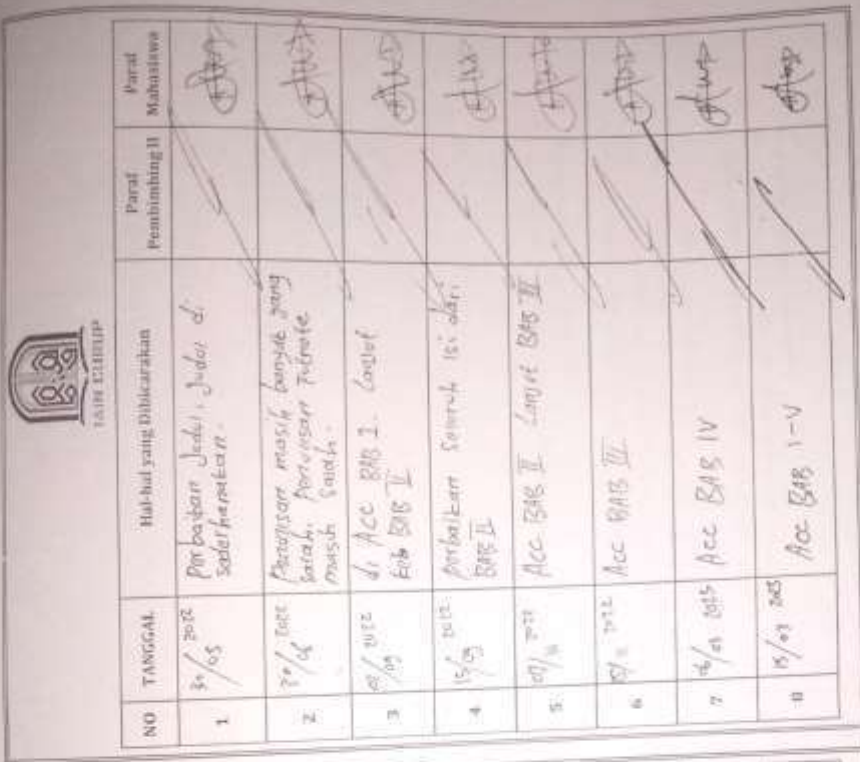 IAIN CURUP
NO TANGGAL Hal-hal yang Dibicarakan Paraf Pembimbing II Paraf Mahasiswa
1 30/05 2022 Perbaikan Judul, Judul di
sederhanakan.
2 2022 Penulisan masih banyak yang
salah. Penulisan Futnote
masih salah.
3 02/09 2022 di Acc BAB I. Lanjut
BAB II
4 15/09 2022 perbaikan seluruh isi dari
BAB II
5 2022 Acc BAB II Lanjut BAB III
6 2022 Acc BAB III
7 2023 Acc BAB IV
8 15/03 2023 Acc BAB I-V